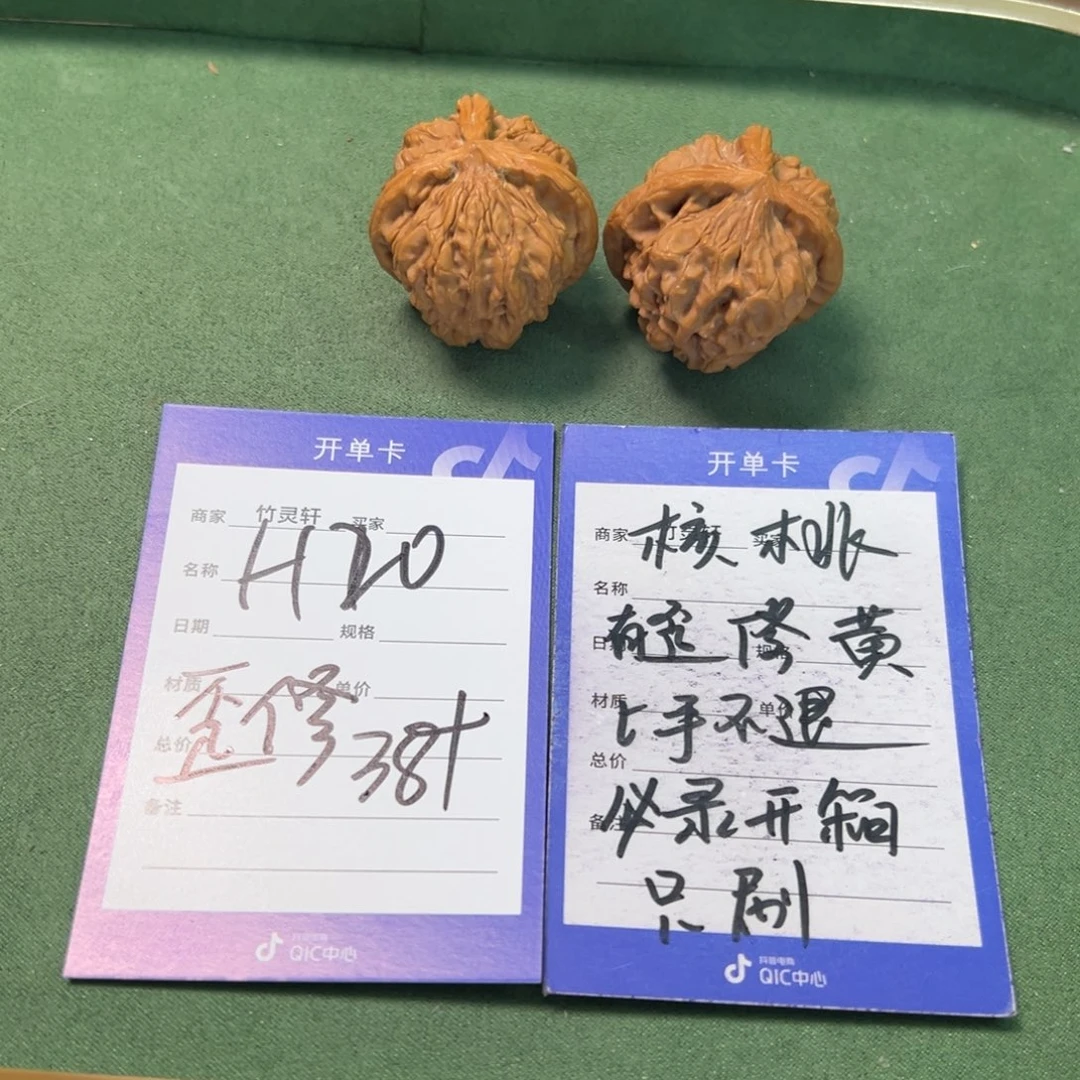 开单卡
商家 竹灵轩 买家
H20
名称
日期 规格
材质 单价
歪修 38+
总价
备注
抖音电商
QIC中心
开单卡
商家 竹灵轩 买家
核桃
名称
有歪修黄
日期 规格
材质 单价
上手不退
总价
备注
必录开箱
只刷
抖音电商
QIC中心